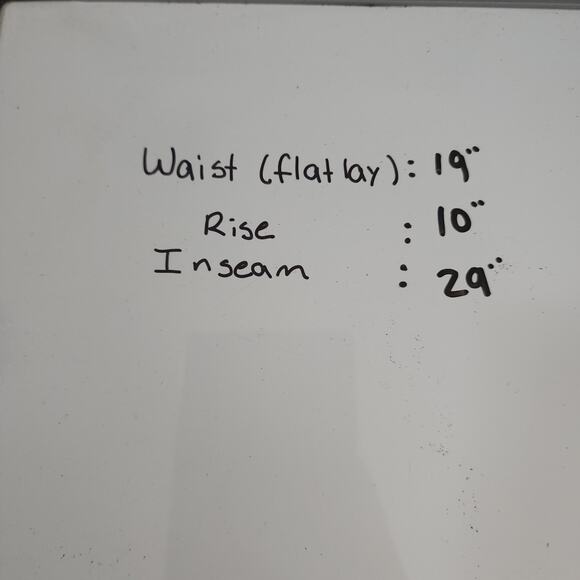 Waist (flat lay): 19"
Rise : 10"
Inseam : 29"